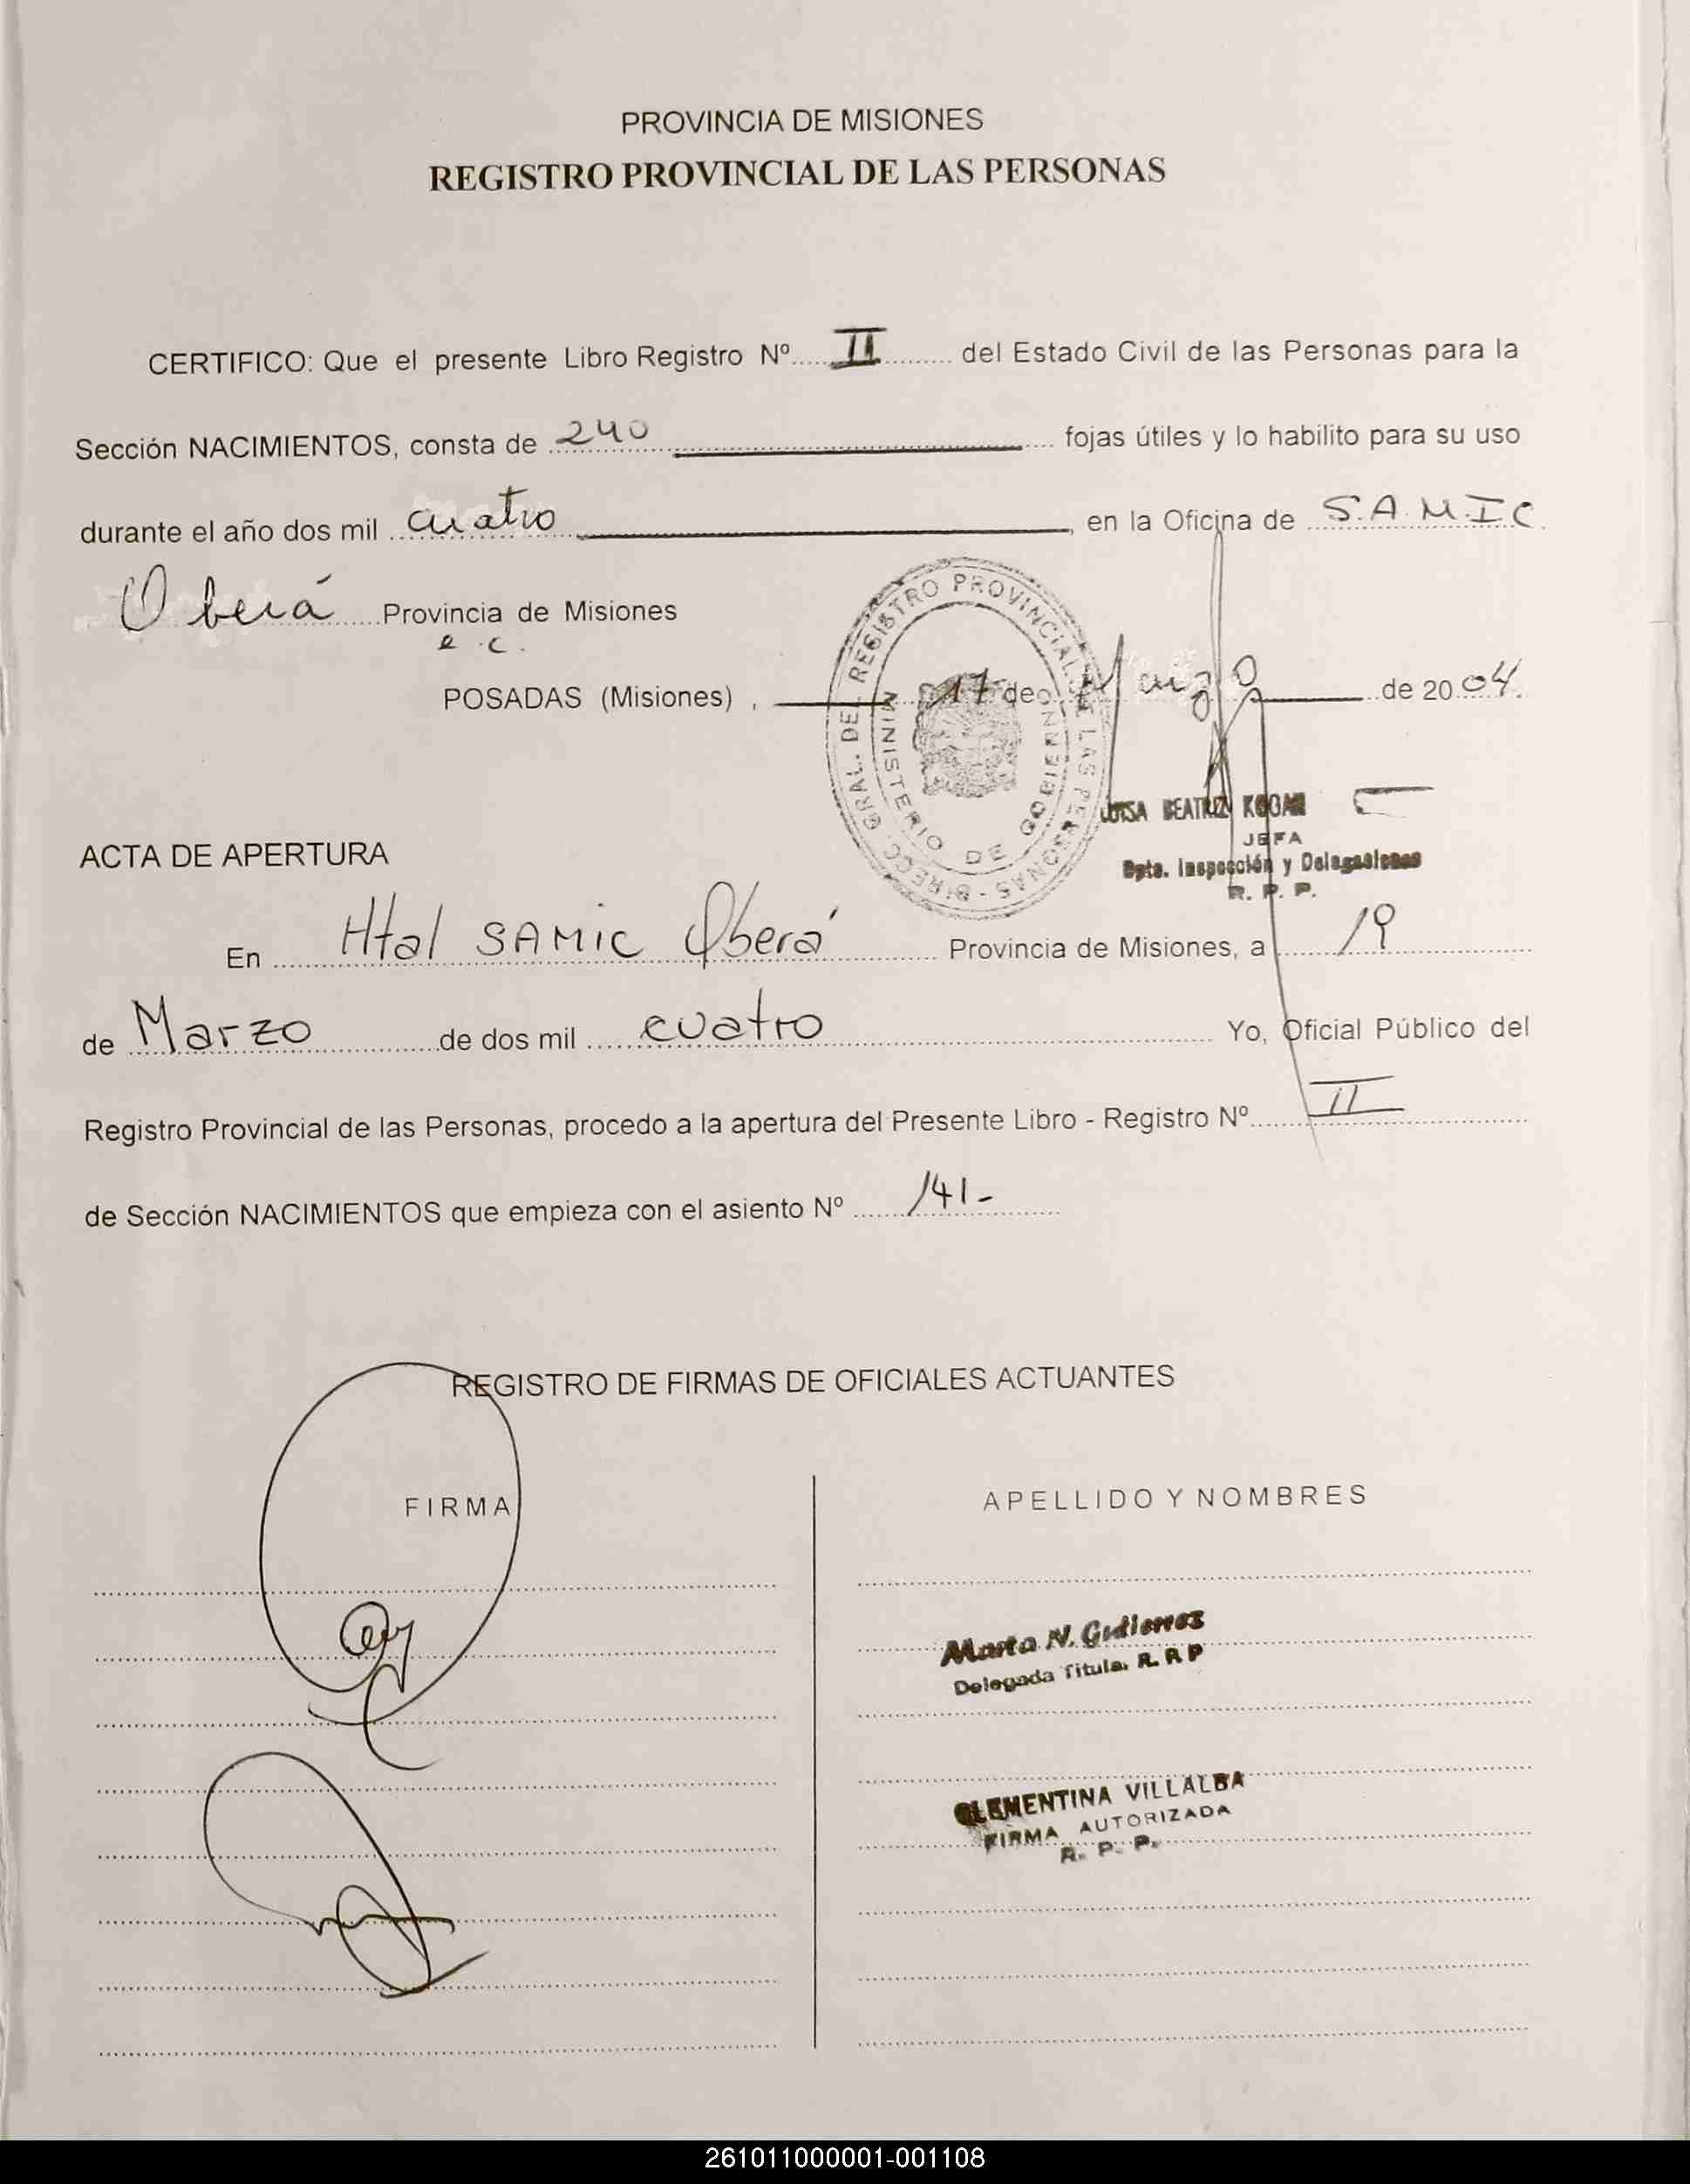 PROVINCIA DE MISIONES
REGISTRO PROVINCIAL DE LAS PERSONAS
CERTIFICO: Que el presente Libro Registro Nº II del Estado Civil de las Personas para la
Sección NACIMIENTOS, consta de 240 fojas útiles y lo habilito para su uso
durante el año dos mil cuatro, en la Oficina de S.A.M.I.C
Oberá Provincia de Misiones
e.c.
POSADAS (Misiones), 17 de Marzo de 2004.
DIRECC. GRAL. DEL REGISTRO PROVINCIAL DE LAS PERSONAS
MINISTERIO DE GOBIERNO
LUISA BEATRIZ KOGAN
JEFA
Dpto. Inspección y Delegaciones
R. P. P.
ACTA DE APERTURA
En Htal SAMIC Oberá Provincia de Misiones, a 19
de Marzo de dos mil cuatro Yo, Oficial Público del
Registro Provincial de las Personas, procedo a la apertura del Presente Libro - Registro Nº II
de Sección NACIMIENTOS que empieza con el asiento Nº 141-
REGISTRO DE FIRMAS DE OFICIALES ACTUANTES
FIRMA
APELLIDO Y NOMBRES
Marta N. Gutierrez
Delegada Titular R. P. P
CLEMENTINA VILLALBA
FIRMA AUTORIZADA
R. P. P.
261011000001-001108